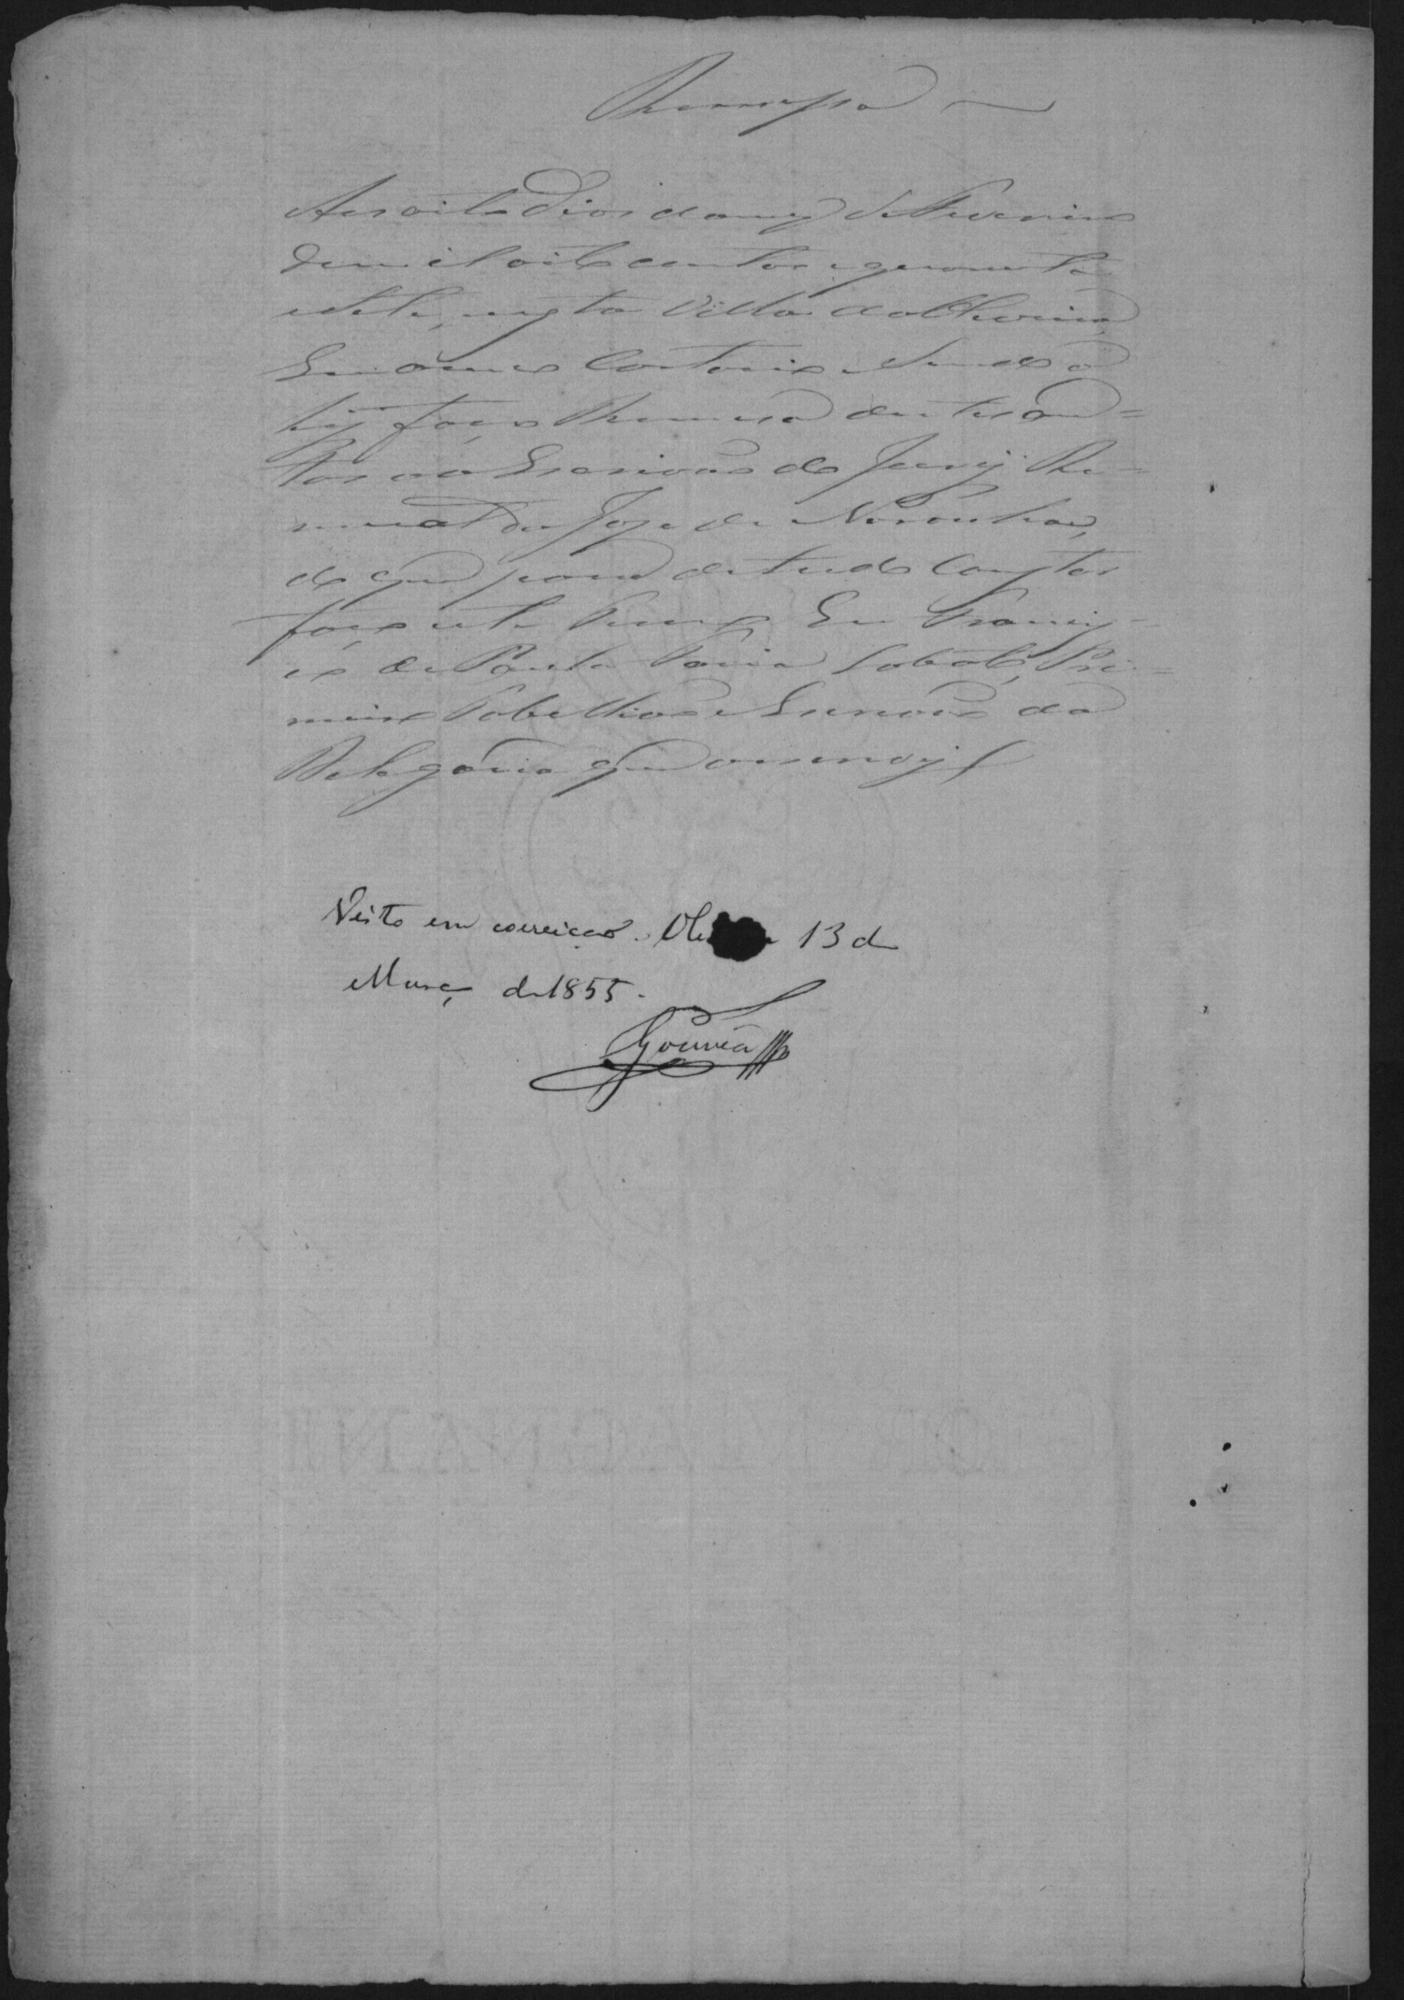 Remessa
Aos oito dias do mez de Fevereiro
de mil oito centos e quarenta
e sete, nesta Villa da Oliveira
Em o meu Cartorio e sendo a
hi, faço Remessa destes au=
tos ao Escrivão do Jury
de Jose de Noronha,
do que para de tudo constar
faço este Termo Eu Francis=
co de Paula Faria Lobato, Pri=
meiro Tabellião e Escrivão da
Delegacia que o escrevy
Visto em correicão. Oli 13 de
Março de 1855.
Gouvêa